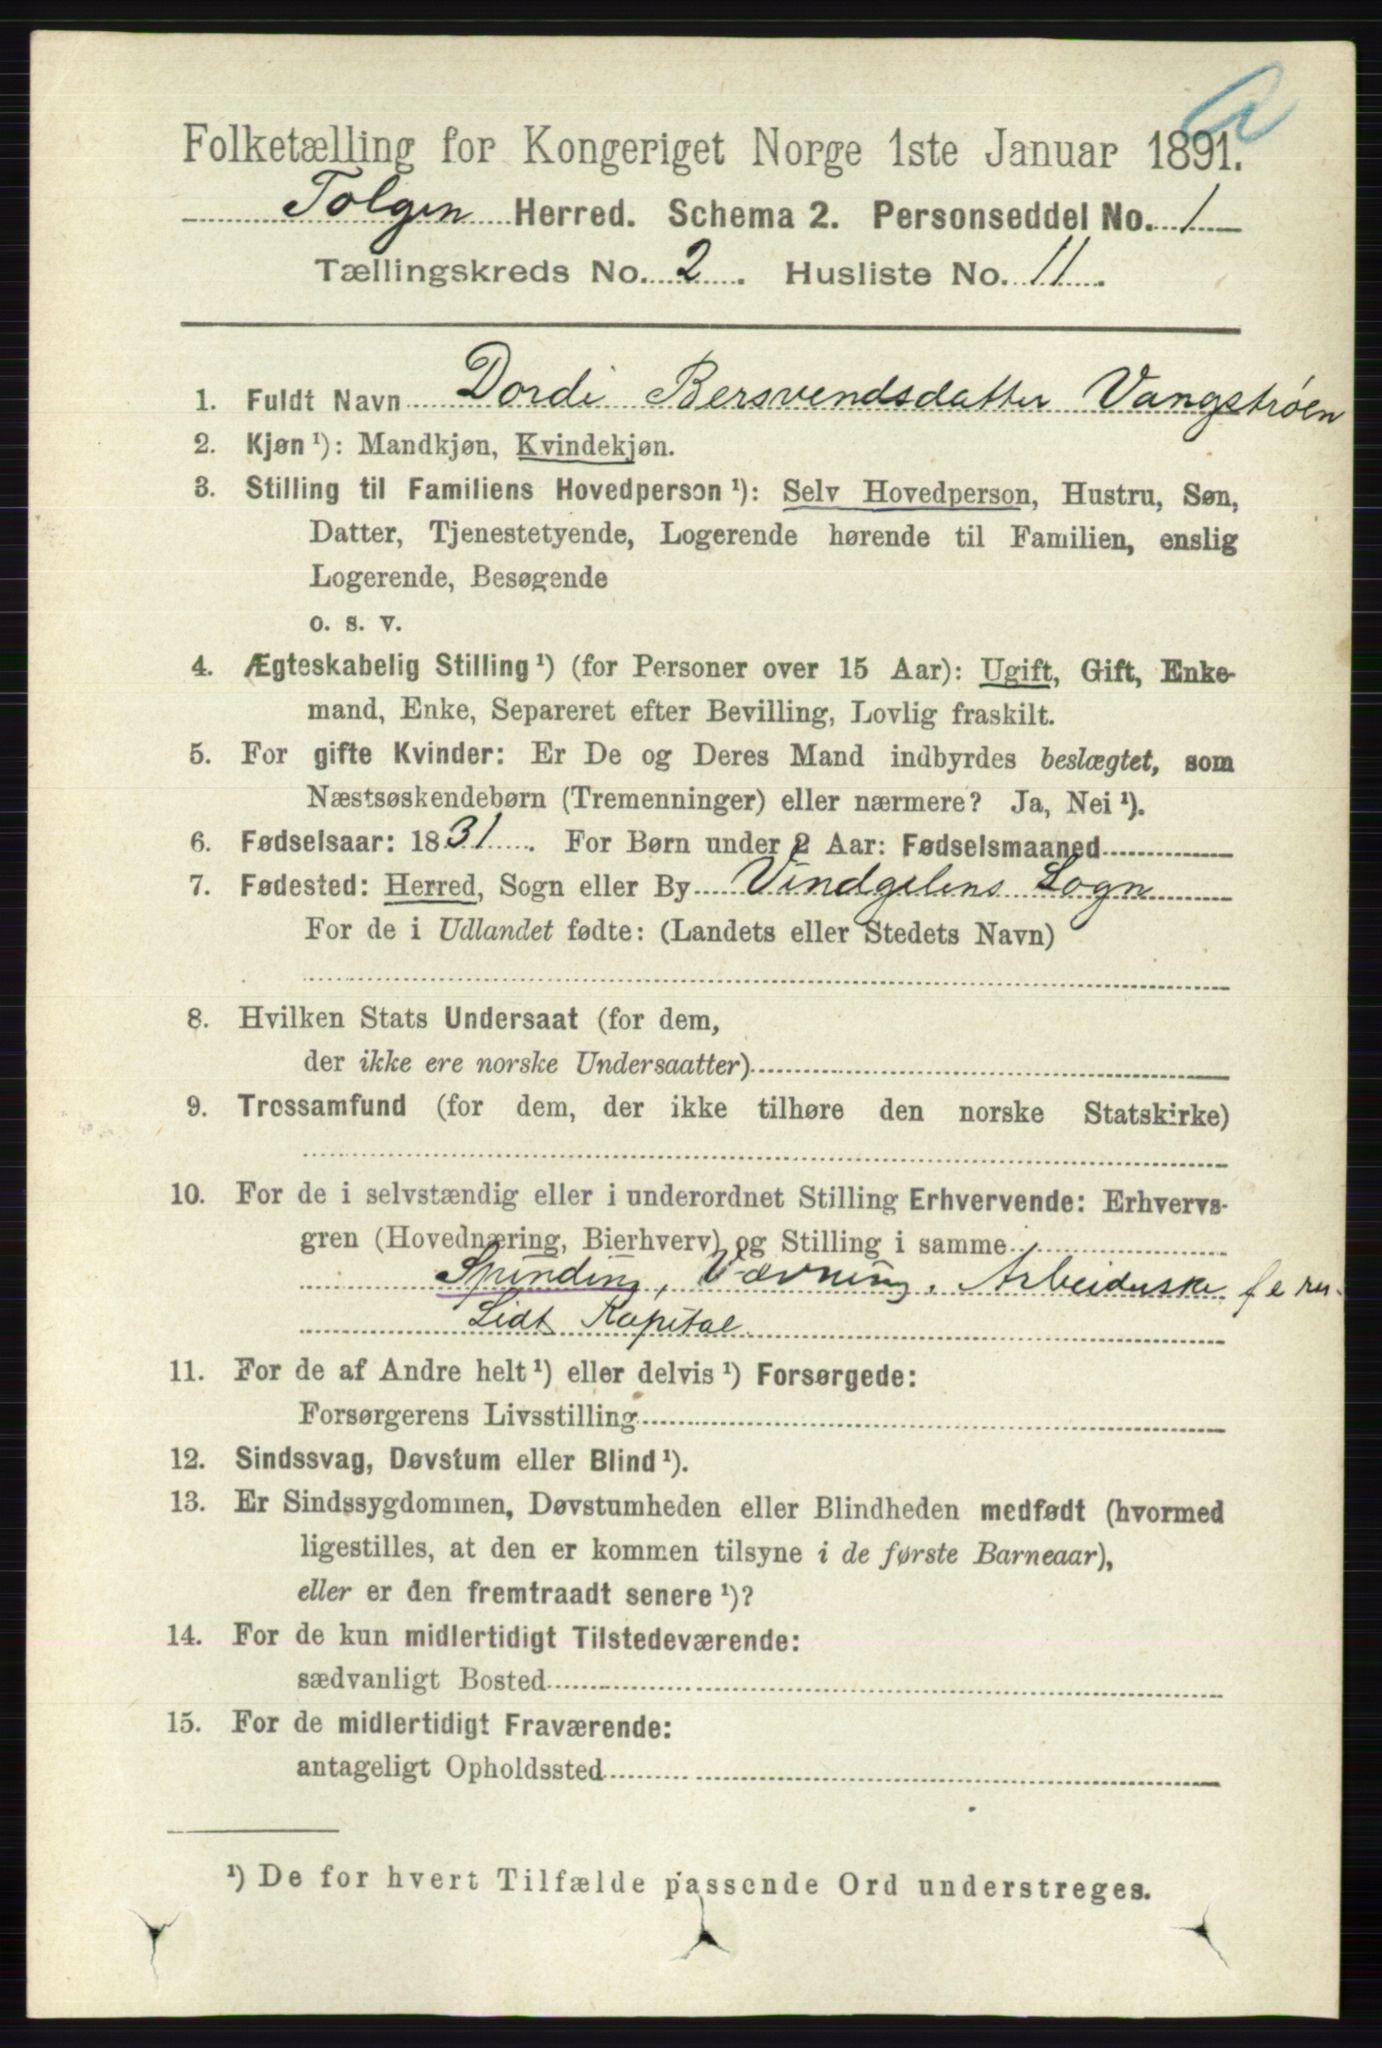 a
Folketælling for Kongeriget Norge 1ste Januar 1891.
Tolgen Herred. Schema 2. Personseddel No. 1
Tællingskreds No. 2. Husliste No. 11.
1. Fuldt Navn Dordi Bersvendsdatter Vangstrøen
2. Kjøn ¹): Mandkjøn, Kvindekjøn.
3. Stilling til Familiens Hovedperson ¹): Selv Hovedperson, Hustru, Søn,
Datter, Tjenestetyende, Logerende hørende til Familien, enslig
Logerende, Besøgende
o. s. v.
4. Ægteskabelig Stilling ¹) (for Personer over 15 Aar): Ugift, Gift, Enke-
mand, Enke, Separeret efter Bevilling, Lovlig fraskilt.
5. For gifte Kvinder: Er De og Deres Mand indbyrdes beslægtet, som
Næstsøskendebørn (Tremenninger) eller nærmere? Ja, Nei ¹).
6. Fødselsaar: 1831. For Børn under 2 Aar: Fødselsmaaned
7. Fødested: Herred, Sogn eller By Vindgelens Sogn
For de i Udlandet fødte: (Landets eller Stedets Navn)
8. Hvilken Stats Undersaat (for dem,
der ikke ere norske Undersaatter)
9. Trossamfund (for dem, der ikke tilhøre den norske Statskirke)
10. For de i selvstændig eller i underordnet Stilling Erhvervende: Erhvervs-
gren (Hovednæring, Bierhverv) og Stilling i samme
Spinding, Vævning. Arbeiderske f e r
Lidt Kapital
11. For de af Andre helt ¹) eller delvis ¹) Forsørgede:
Forsørgerens Livsstilling
12. Sindssvag, Døvstum eller Blind ¹).
13. Er Sindssygdommen, Døvstumheden eller Blindheden medfødt (hvormed
ligestilles, at den er kommen tilsyne i de første Barneaar),
eller er den fremtraadt senere ¹)?
14. For de kun midlertidigt Tilstedeværende:
sædvanligt Bosted
15. For de midlertidigt Fraværende:
antageligt Opholdssted
¹) De for hvert Tilfælde passende Ord understreges.